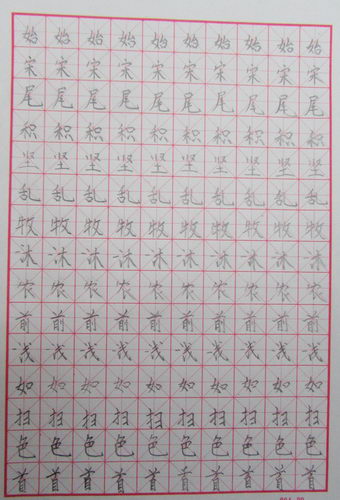 始始始始始始始始始始
宋宋宋宋宋宋宋宋宋宋
尾尾尾尾尾尾尾尾尾尾
积积积积积积积积积积
坚坚坚坚坚坚坚坚坚坚
乱乱乱乱乱乱乱乱乱乱
牧牧牧牧牧牧牧牧牧牧
沐沐沐沐沐沐沐沐沐沐
农农农农农农农农农农
前前前前前前前前前前
浅浅浅浅浅浅浅浅浅浅
如如如如如如如如如如
扫扫扫扫扫扫扫扫扫扫
色色色色色色色色色色
首首首首首首首首首首